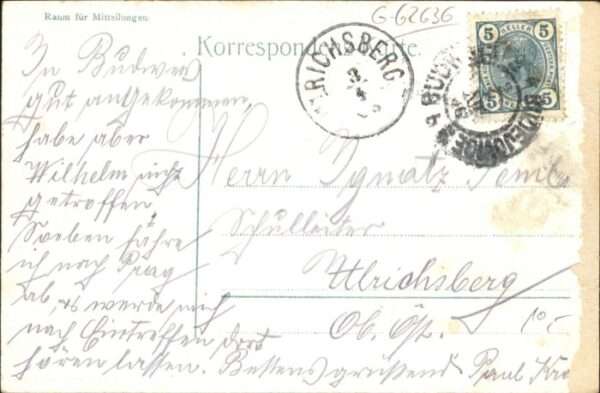 Raum für Mitteilungen.
G-62636
Korrespondenz-Karte.
RICHSBERG
5 HELLER 5
5 5
BUDW
In Budweis
gut angekommen,
habe aber
Wilhelm nicht
getroffen
Soeben fahre
ich nach Prag
ab, werde mich
nach Eintreffen dort
hören lassen. Bestens grüßend Paul
Herrn Ignatz
Schulleiter
Ulrichsberg
Ob. Öst.
10-